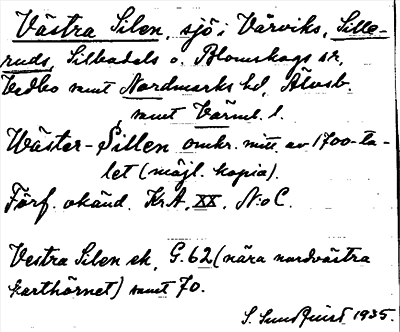 Västra Silen, sjö i Värviks, Sille-
ruds, Silbodals o. Blomskogs sk,
Vedbo samt Nordmarks hd, Älvsb.
samt Värml. l.
Wäster-Sillen omkr. mitt. av 1700-ta-
let (möjl. kopia).
Förf. okänd. KrA, XX, N:o C.
Vestra Silen ek, G. 62 (nära nordvästra
karthörnet) samt 70.
S. Sundquist 1935.